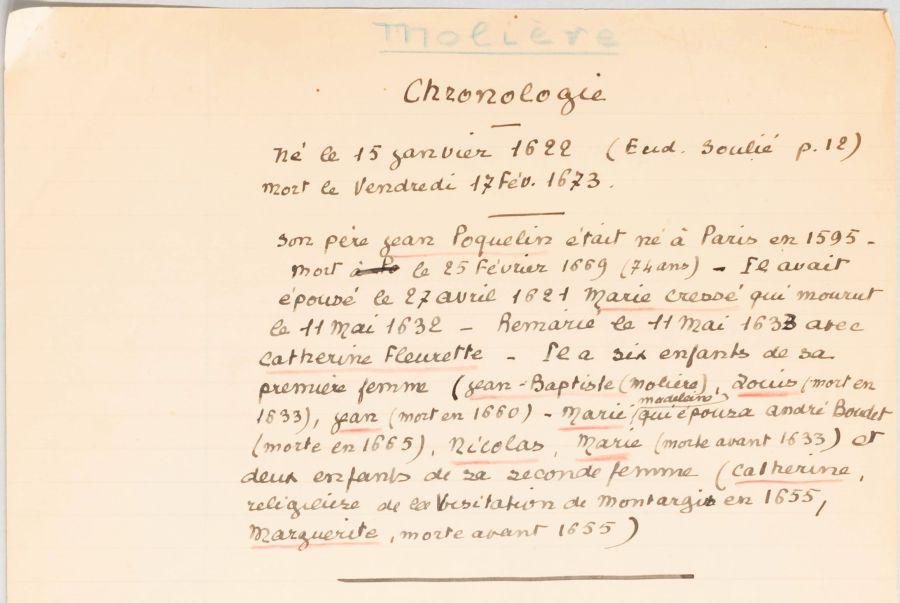 Molière
Chronologie
Né le 15 janvier 1622 (Eud. Soulié p. 12)
mort le Vendredi 17 Fév. 1673.
Son père Jean Poquelin était né à Paris en 1595 -
mort à le 25 Février 1669 (74 ans) - Il avait
épousé le 27 avril 1621 Marie Cressé qui mourut
le 11 Mai 1632 - Remarié le 11 Mai 1633 avec
Catherine Fleurette - Il a six enfants de sa
première femme (Jean-Baptiste (molière), Louis (mort en
1633), Jean (mort en 1660) - Marie madeleine (qui épousa andré Boudet
(morte en 1665), Nicolas, Marie (morte avant 1633) et
deux enfants de sa seconde femme (Catherine,
religieuse de la Visitation de Montargis en 1655,
Marguerite, morte avant 1655)